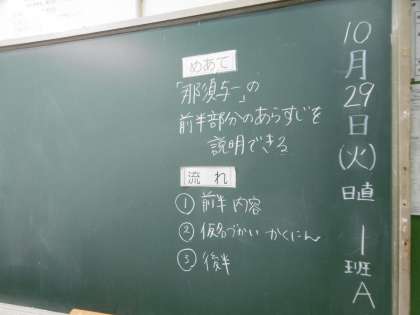 10月29日(火) 日直 1班A
めあて
「那須与一」の
前半部分のあらすじを
説明できる
流れ
① 前半 内容
② 仮名づかい かくにん
③ 後半